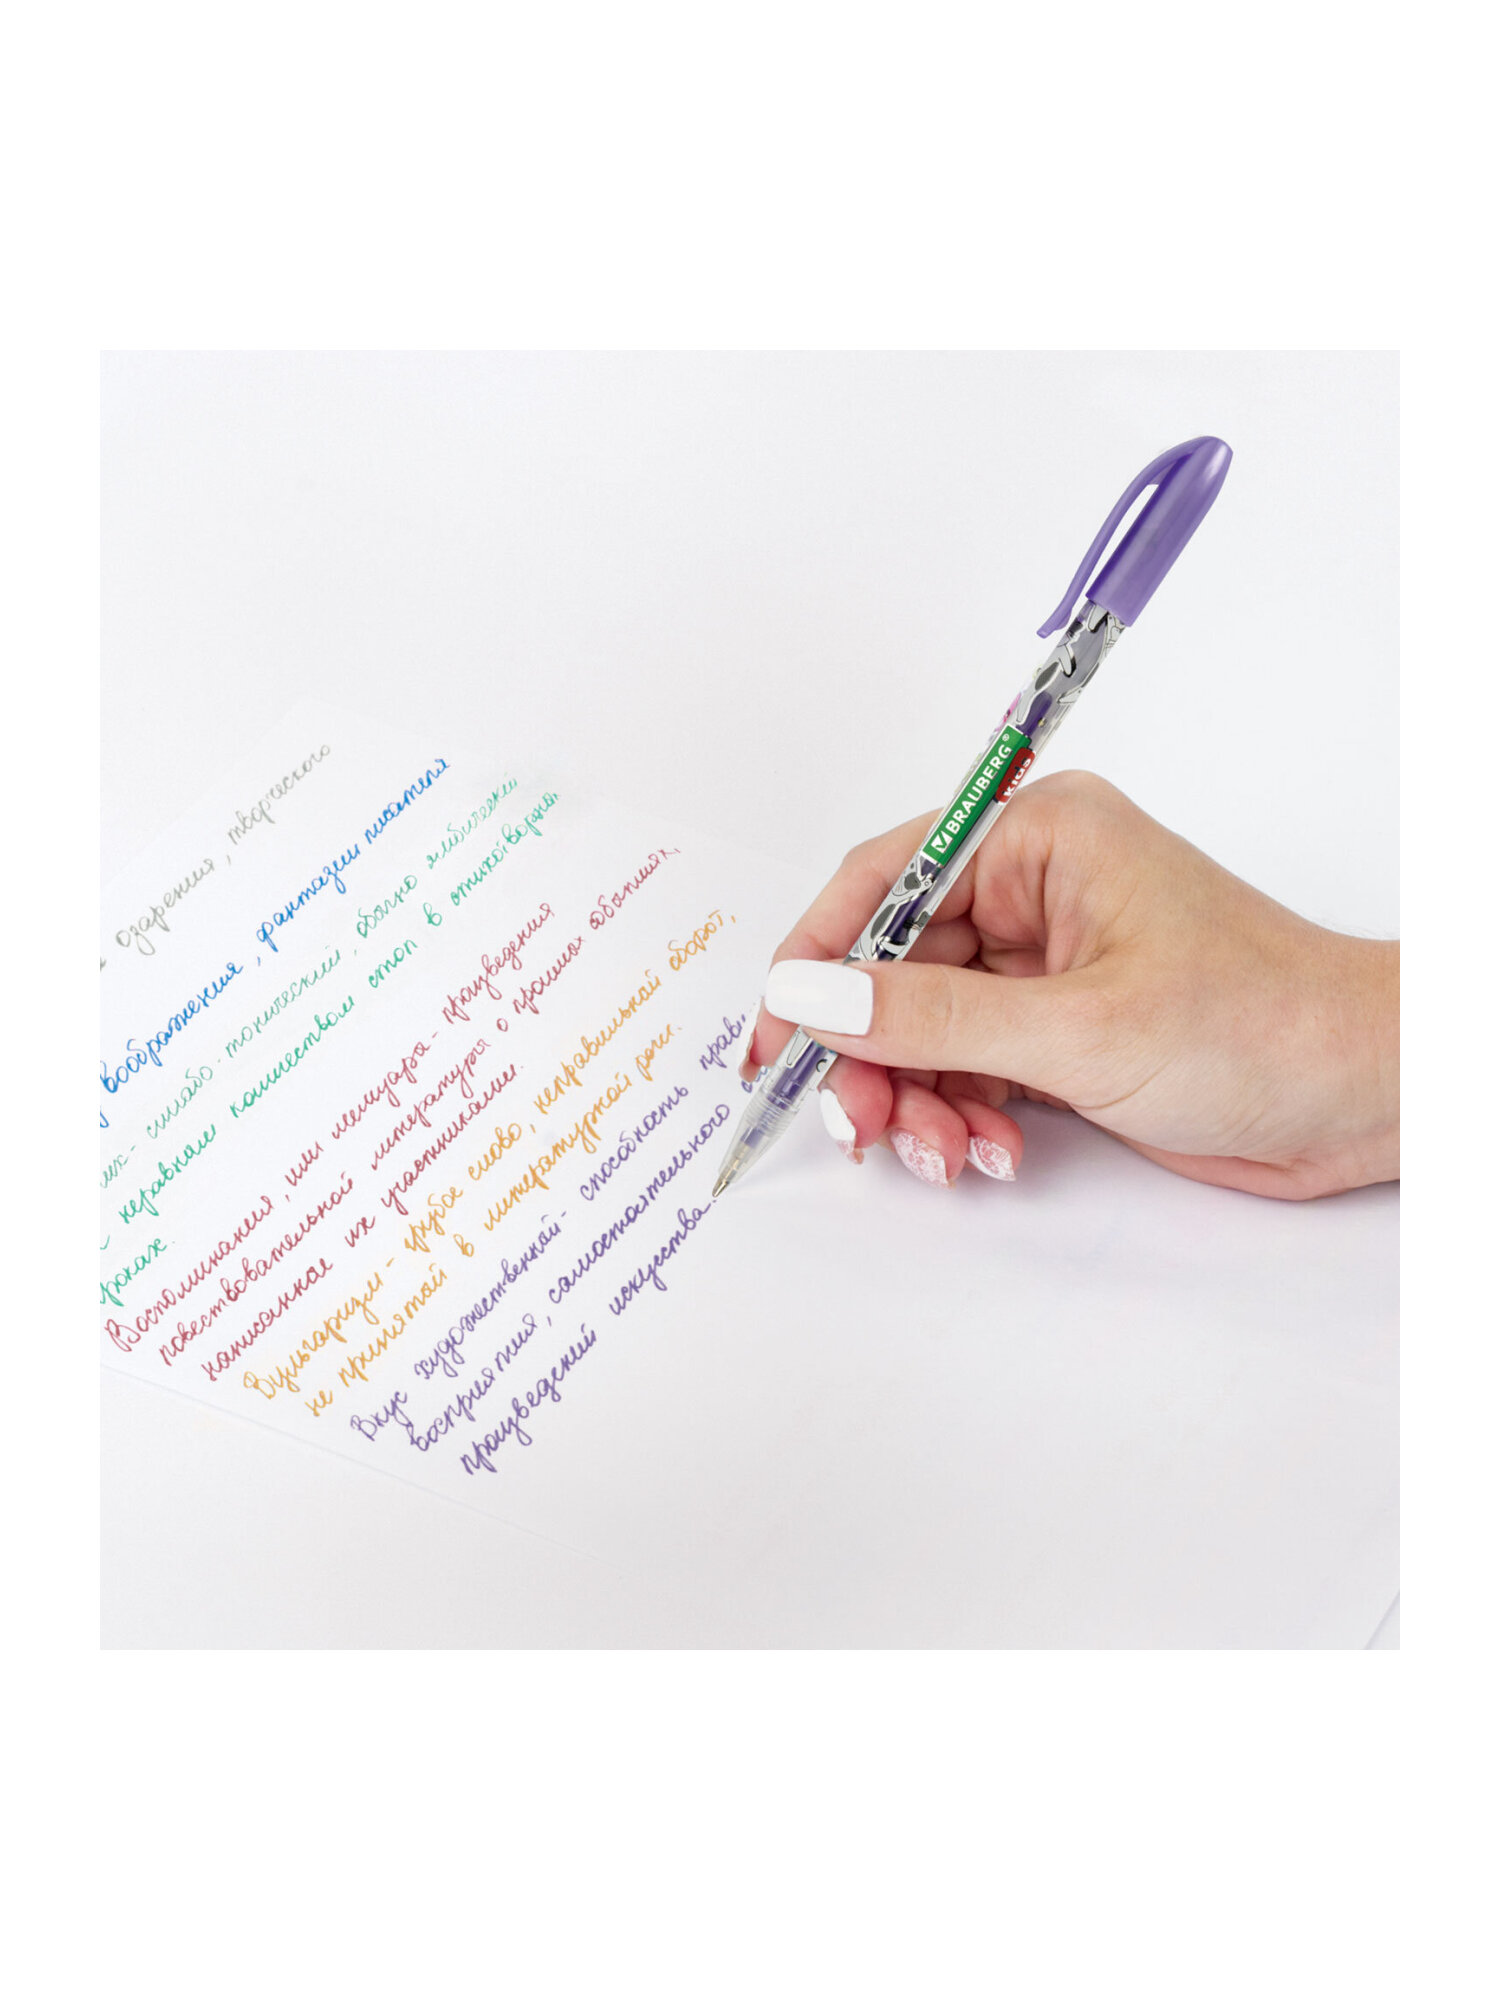 озарения, творческого
воображения, фантазии писателя
силлабо-тонический, обычно ямбический
неравным количеством стоп в стихотворных
Воспоминания, или мемуары - произведения
повествовательной литературы о прошлых событиях,
написанное их участниками.
Вульгаризм - грубое слово, неправильный оборот,
не принятой в литературной речи.
Вкус художественный - способность прави
восприятия, самостоятельного
произведений искусства.
BRAUBERG®
Kids